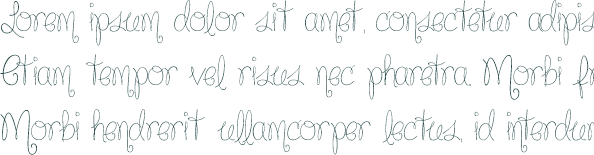 Lorem ipsum dolor sit amet, consectetur adipis
Etiam tempor vel risus nec pharetra. Morbi fr
Morbi hendrerit ullamcorper lectus, id interdum